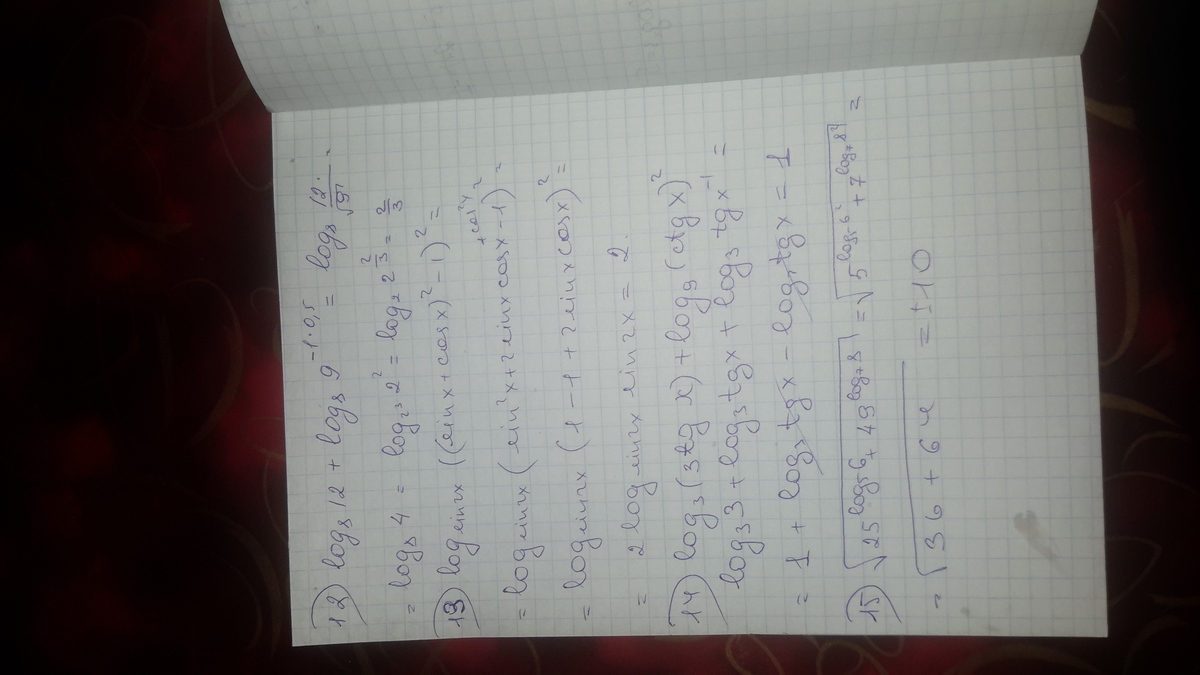 12) log₈12 + log₈9^(-1·0,5) = log₈ 12/√9 =
= log₈4 = log_(2³)2² = log₂2^(2/3) = 2/3
13) log_(sin2x)((sinx+cosx)² - 1)² =
= log_(sin2x)(sin²x+2sinx cosx +cos²x -1)² =
= log_(sin2x)(1-1+2sinxcosx)² =
= 2 log_(sin2x) sin2x = 2.
14) log₃(3tg x) + log₃(ctg x)²
log₃3 + log₃tgx + log₃tgx⁻¹ =
= 1 + log₃tgx - log₃tgx = 1
15) √(25^(log₅6) + 49^(log₇8)) = √(5^(log₅6²) + 7^(log₇8²)) =
= √(36+64) = ±10